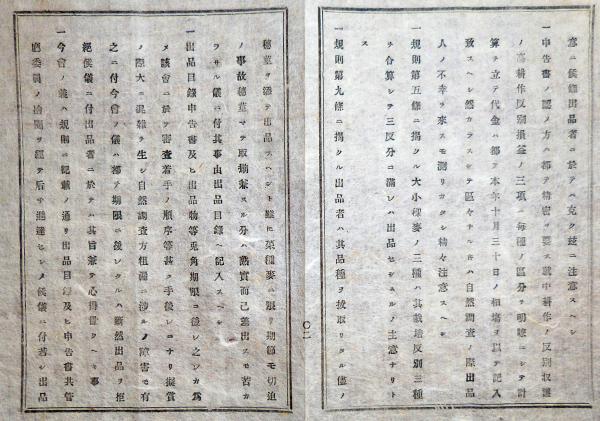 意ニ候條出品者ニ於テハ克ク玆ニ注意スヘシ
一申告書ノ認メ方ハ都テ精密ヲ要ス就中耕作ノ反別収穫
ノ高耕作反別損益ノ三項ハ毎種ノ區分ヲ明瞭ニシテ計
算ヲ立テ代金ハ都テ本年十月三十日ノ相塲ヲ以テ記入
致スヘシ然カラスシテ區々ナルキハ自然調査ノ際出品
人ノ不幸ヲ來スモ測リカタシ精々注意スヘシ
一規則第五條ニ揭クル大小稞麥ノ二種ハ其栽培反別三種
チ合算シテ三反分ニ滿レハ出品セシムルノ主意ナリト
ス
一規則第九條ニ揭クル出品者ハ其品種ヲ拔取リタル儘ノ
穗莖ヲ添テ出品スヘシト雖ヒ菜種麥ニ限リ期節モ切迫
ノ事故穗莖マテ取揃兼スル分ハ熟實而已差出スモ苦カ
ラサル儀ニ付其事由出品目錄ヘ記入スヘシ
一出品目錄申告書及ヒ出品物等兎角期限ニ後レ之レカ爲
メ該會ニ於テ審査着手ノ順序等甚タ手後レニナリ擬賞
ノ際大ニ混雜ヲ生シ自然調査方粗漏ニ涉ルノ障害モ有
之ニ付今會ノ儀ハ都テ期限ニ後レタルハ斷然出品ヲ拒
絕候儀ニ付出品者ニ於テハ其旨兼テ心得置クヘキ事
一今會ノ儀ハ規則ニ記載ノ通リ出品目錄及ヒ申告書共管
廳委員ノ檢閱ヲ經テ后チ遞達セシメ候儀ニ付若シ出品
〇一